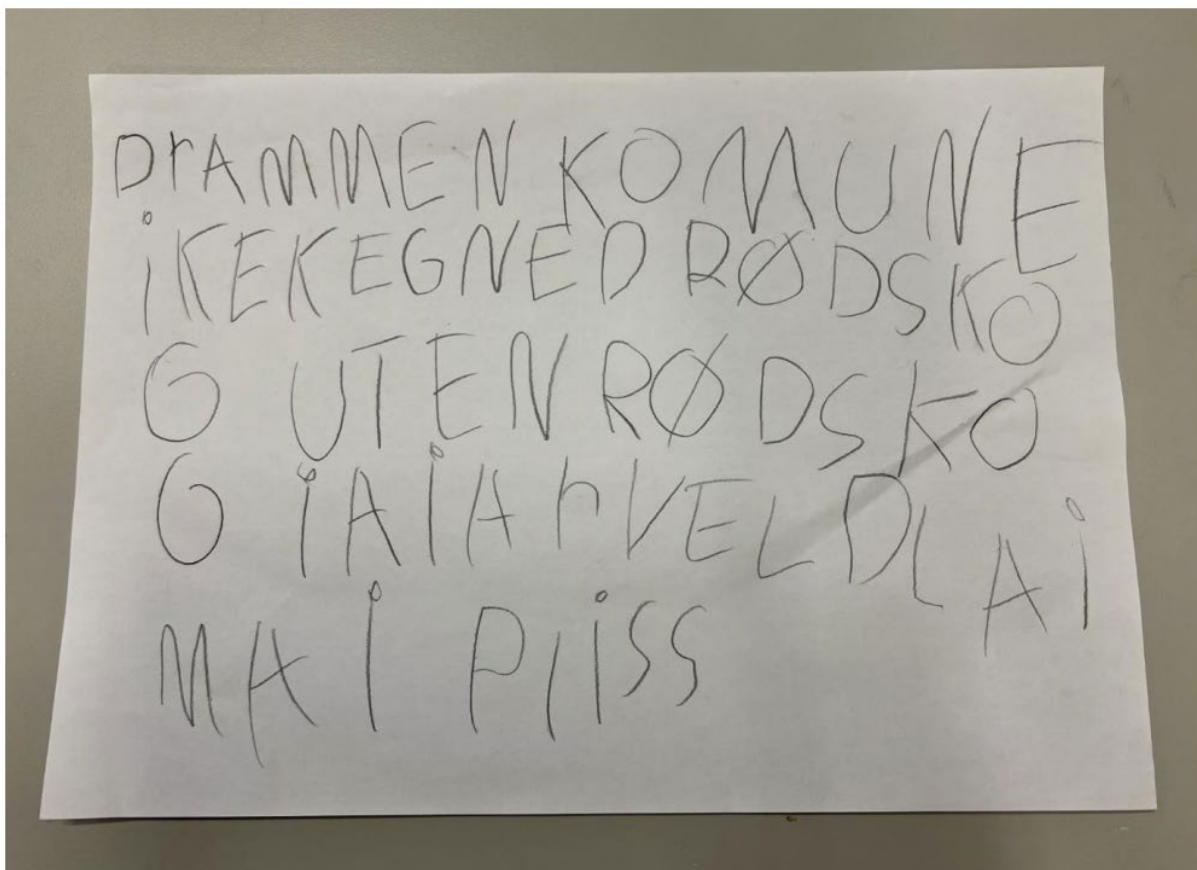 DrAMMEN KOMUNE
iKEKEGNED RØDSKO
G UTEN RØDSKO
G iAiArVELDLAi
MAi PliSS